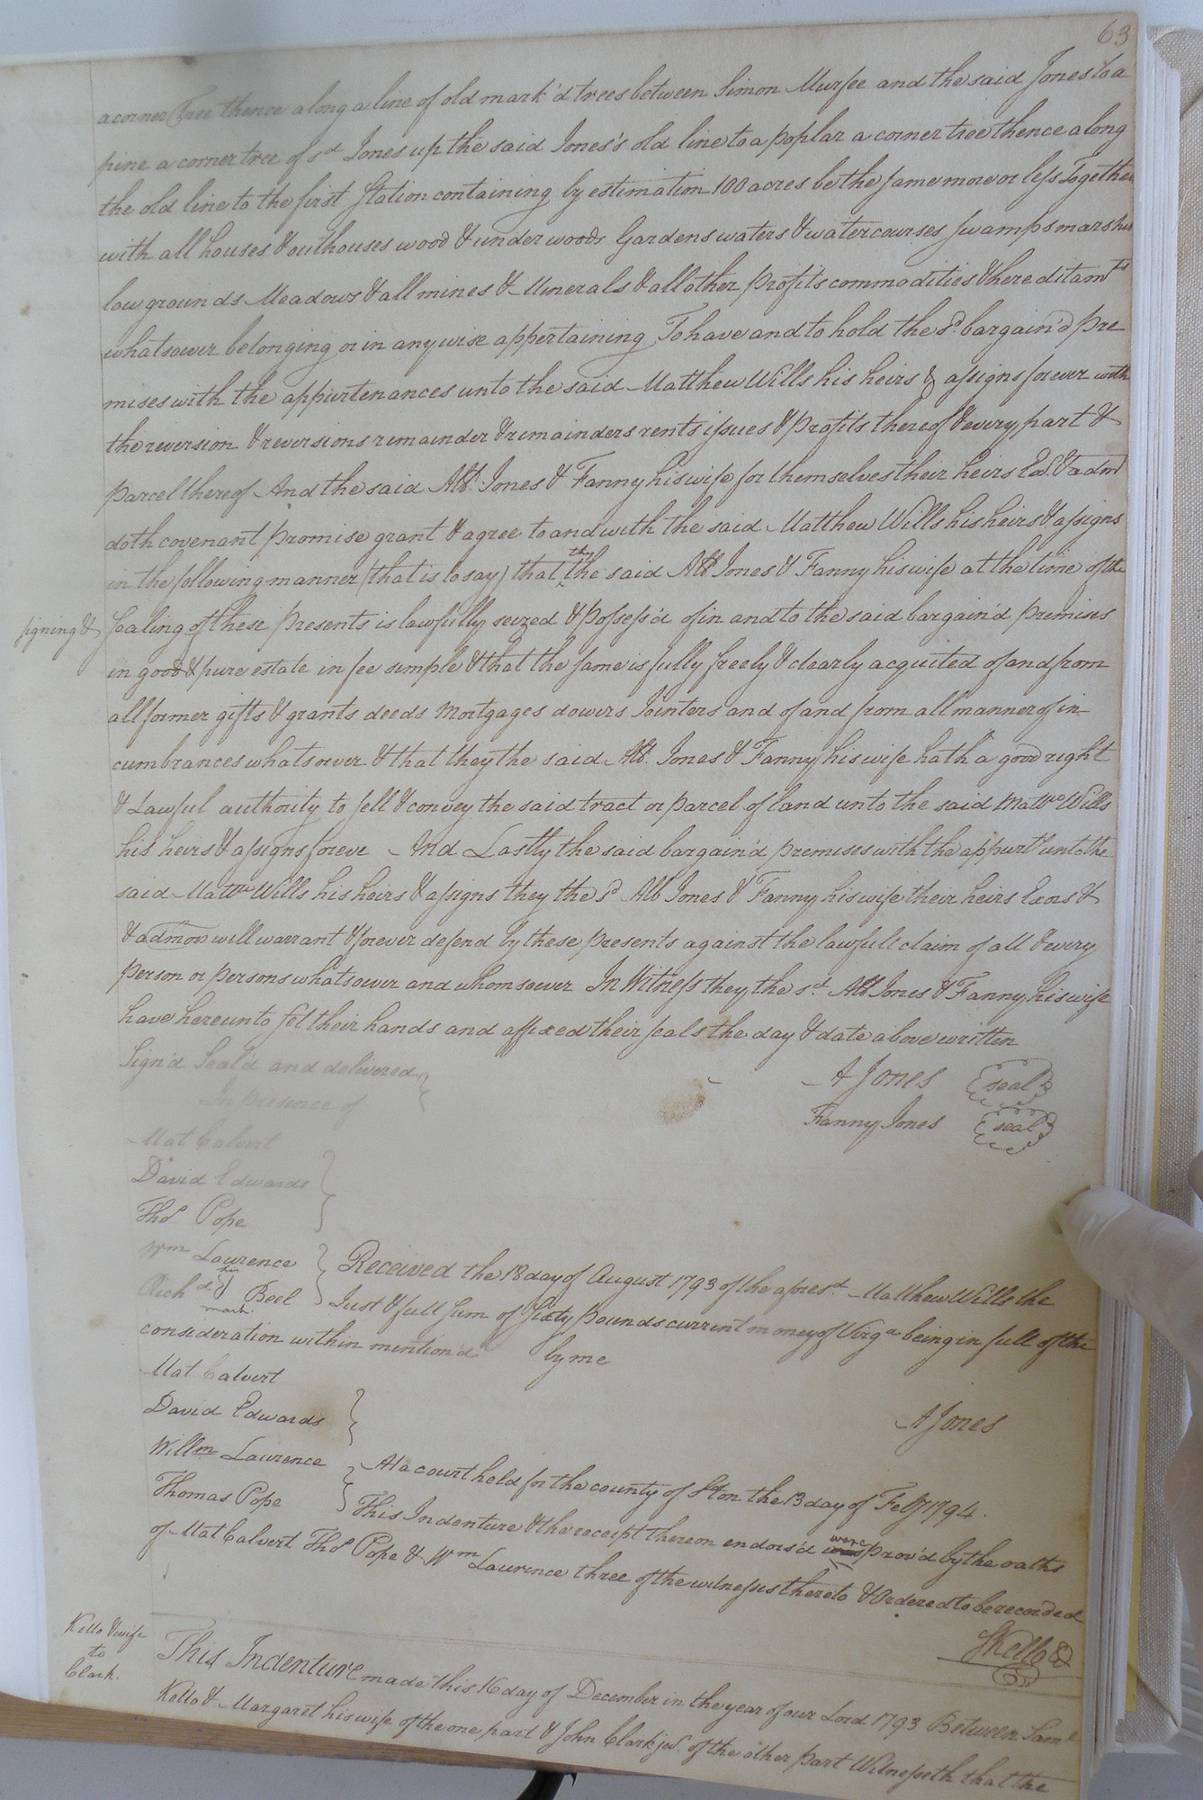 63
a corner Tree thence along a line of old mark'd trees between Simon Murfee and the said Jones to a
pine a corner tree of sd Jones up the said Jones's old line to a poplar a corner tree thence along
the old line to the first Station containing by estimation 100 acres be the same more or less Together
with all houses & outhouses wood & under woods Gardens waters & watercourses swamps marshes
low grounds Meadows & all mines & Minerals & all other profits commodities & hereditamts
whatsoever belonging or in any wise appertaining To have and to hold the sd bargain'd pre
mises with the appurtenances unto the said Matthew Wills his heirs & assigns forever with
the reversion & reversions remainder & remainders rents issues & profits thereof & every part &
parcel thereof And the said Albd. Jones & Fanny his wife for themselves their heirs Exd. & adm
doth covenant promise grant & agree to and with the said Matthew Wills his heirs & assigns
in the following manner (that is to say) that the said Alb Jones & Fanny his wife at the time of the
signing & sealing of these presents is lawfully seized & possess'd of in and to the said bargain'd premises
in good & pure estate in fee simple & that the same is fully freely & clearly acquited of and from
all former gifts & grants deeds Mortgages dowers Jointers and of and from all manner of in-
cumbrances whatsoever & that they the said Alb. Jones & Fanny his wife hath a good right
& Lawful authority to sell & convey the said tract or parcel of land unto the said Mattw Wills
his heirs & assigns foreve And Lastly the said bargain'd premises with the appurts unto the
said Mattw Wills his heirs & assigns they the sd Alb Jones & Fanny his wife their heirs Exors &
& admon will warrant & forever defend by these presents against the lawfull claim of all & every
person or persons whatsoever and whomsoever In Witness they the sd. Alb Jones & Fanny his wife
have hereunto set their hands and affixed their seals the day & date above written
Sign'd Seal'd and delivered
In presence of
A Jones seal
Fanny Jones seal
Mat Calvert
David Edwards
Thos Pope
Wm Laurence
Richd his mark Beel
Received the 18 day of August 1793 of the aforesd. Matthew Wills the
Just & full sum of Sixty pounds current money of Virga being in full of the
consideration within mention'd by me
Mat Calvert
David Edwards
Willm Laurence
Thomas Pope
A Jones
At a court held for the county of Ston the 13 day of Feby 1794.
This Indenture & the receipt thereon endors'd were prov'd by the oaths
of Mat Calvert Thos Pope & Wm Laurence three of the witnesses thereto & Ordered to be recorded
Kello & wife
to
Clark.
This Indenture made this 16 day of December in the year of our Lord 1793 Between Saml
Kello & Margaret his wife of the one part & John Clark jur. of the other part Witnesseth that the